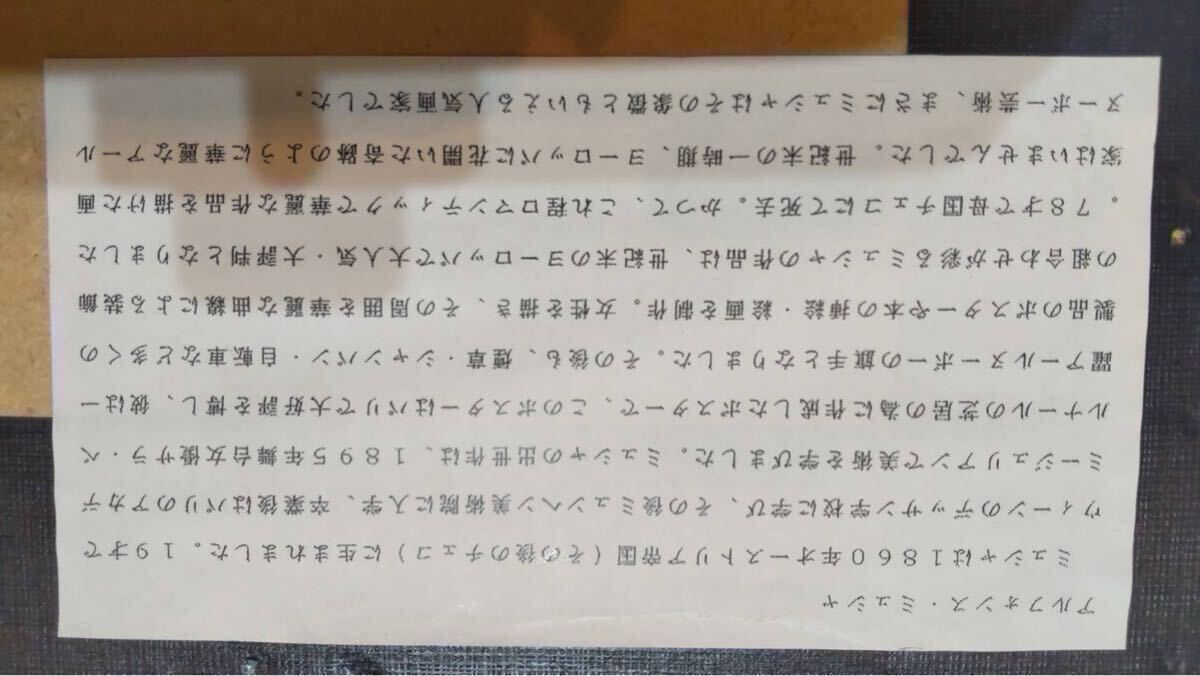 アルフォンス・ミュシャ
ミュシャは1860年オーストリア帝国（その後のチェコ）に生まれました。19才で
ウィーンのデッサン学校に学び、その後ミュンヘン美術院に入学、卒業後はパリのアカデ
ミージュリアンで美術を学びました。ミュシャの出世作は、1895年舞台女優サラ・ベ
ルナールの芝居の為に作成したポスターで、このポスターはパリで大好評を博し、彼は一
躍アールヌーボーの旗手となりました。その後も、煙草・シャンパン・自転車など多くの
製品のポスターや本の挿絵・絵画を制作。女性を描き、その周囲を華麗な曲線による装飾
の組合わせが彩るミュシャの作品は、世紀末のヨーロッパで大人気・大評判となりました
。78才で母国チェコにて死去。かつて、これ程ロマンティックで華麗な作品を描けた画
家はいませんでした。世紀末の一時期、ヨーロッパに花開いた奇跡のように華麗なアール
ヌーボー芸術、まさにミュシャはその象徴ともいえる人気画家でした。